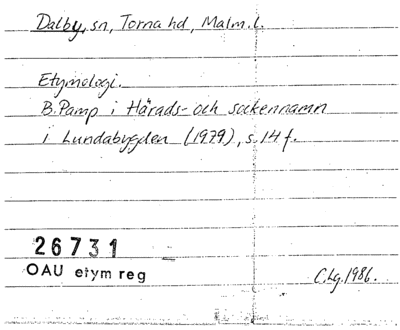 Dalby, sn, Torna hd, Malm. l.
Etymologi.
B. Pamp i Härads- och sockennamn
i Lundabygden (1979), s. 14 f.
26731
OAU etym reg
C. Lg. 1986.